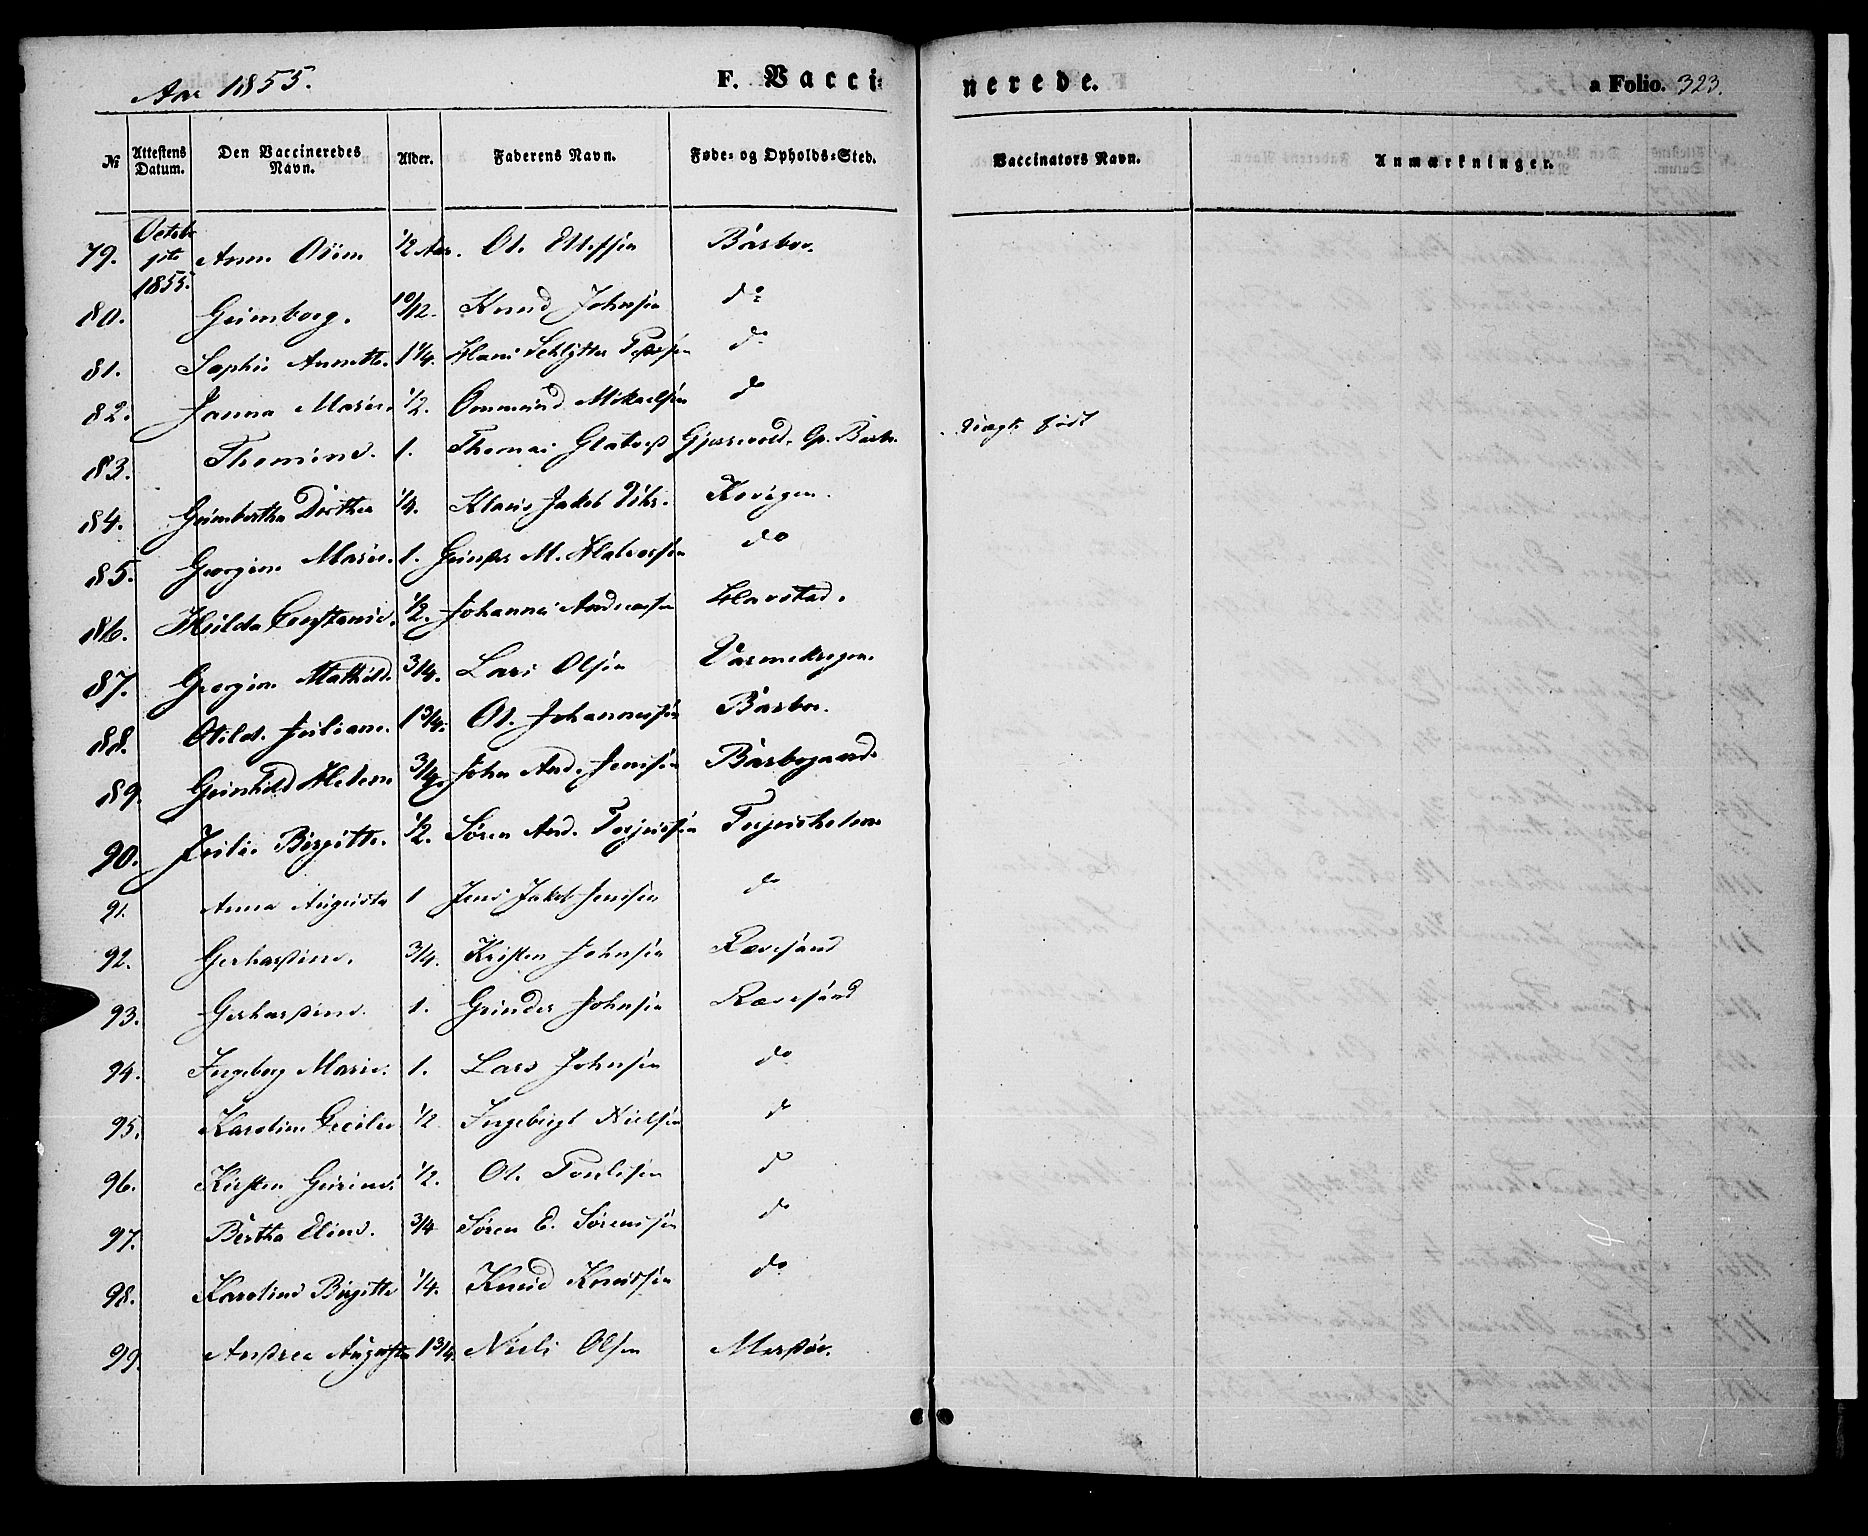 Aar 1855.
F. Vacci-
nerede.
a Folio. 323.
№ Attestens Datum. Den Vaccineredes Navn. Alder. Faderens Navn. Føde- og Opholds-Sted. Vaccinators Navn. Anmærkninger.
Octob
1855.
79. Anne 1/2 Aar. Ol. Ellefsen Barbo.
80. Gunborg. 10/12. Knud Johnsen do
81. Sophie Annette. 1 1/4. Hans Schlytter do
82. Janna Marie. 1/2. Mikaelsen do
83. Thomine. 1. Thomas
84. Dorthea 1/4. Klaus Jakob Kovigen.
85. Georgine Marie. 1. Gunder M. Halvorsen do
86. Hilda Constance. 1/2. Johannes Andreassen Havstad.
87. Georgine Mathild. 3/4. Lars Olsen
88. Otild. Juliane. 1 3/4. Ol. Johannessen Barbo.
89. Gunhild Helene 3/4. John And. Jensen Barbogaard.
90. Julie Birgitte. 1/2. Søren And. Terjussen Terjusholm
91. Anna Augusta 1 Jens Jakob Jensen do
92. Gerhardine. 3/4. Kristen Johnsen Rævesand
93. Gerhardine. 1. Gunder Johnsen Rævesand
94. Ingeborg Marie. 1. Lars Johnsen do
95. Karoline Cecilie 1/2 Ingebrigt Nielsen do
96. Kirsten Gurine. 1/2. Ol. Poulsen do
97. Bertha Eline. 3/4 Søren E. Sørensen do
98. Karoline Birgitte 1/4. Knud Knudsen do
99. Andrea Augusta 1 3/4 Niels Olsen Merdør.